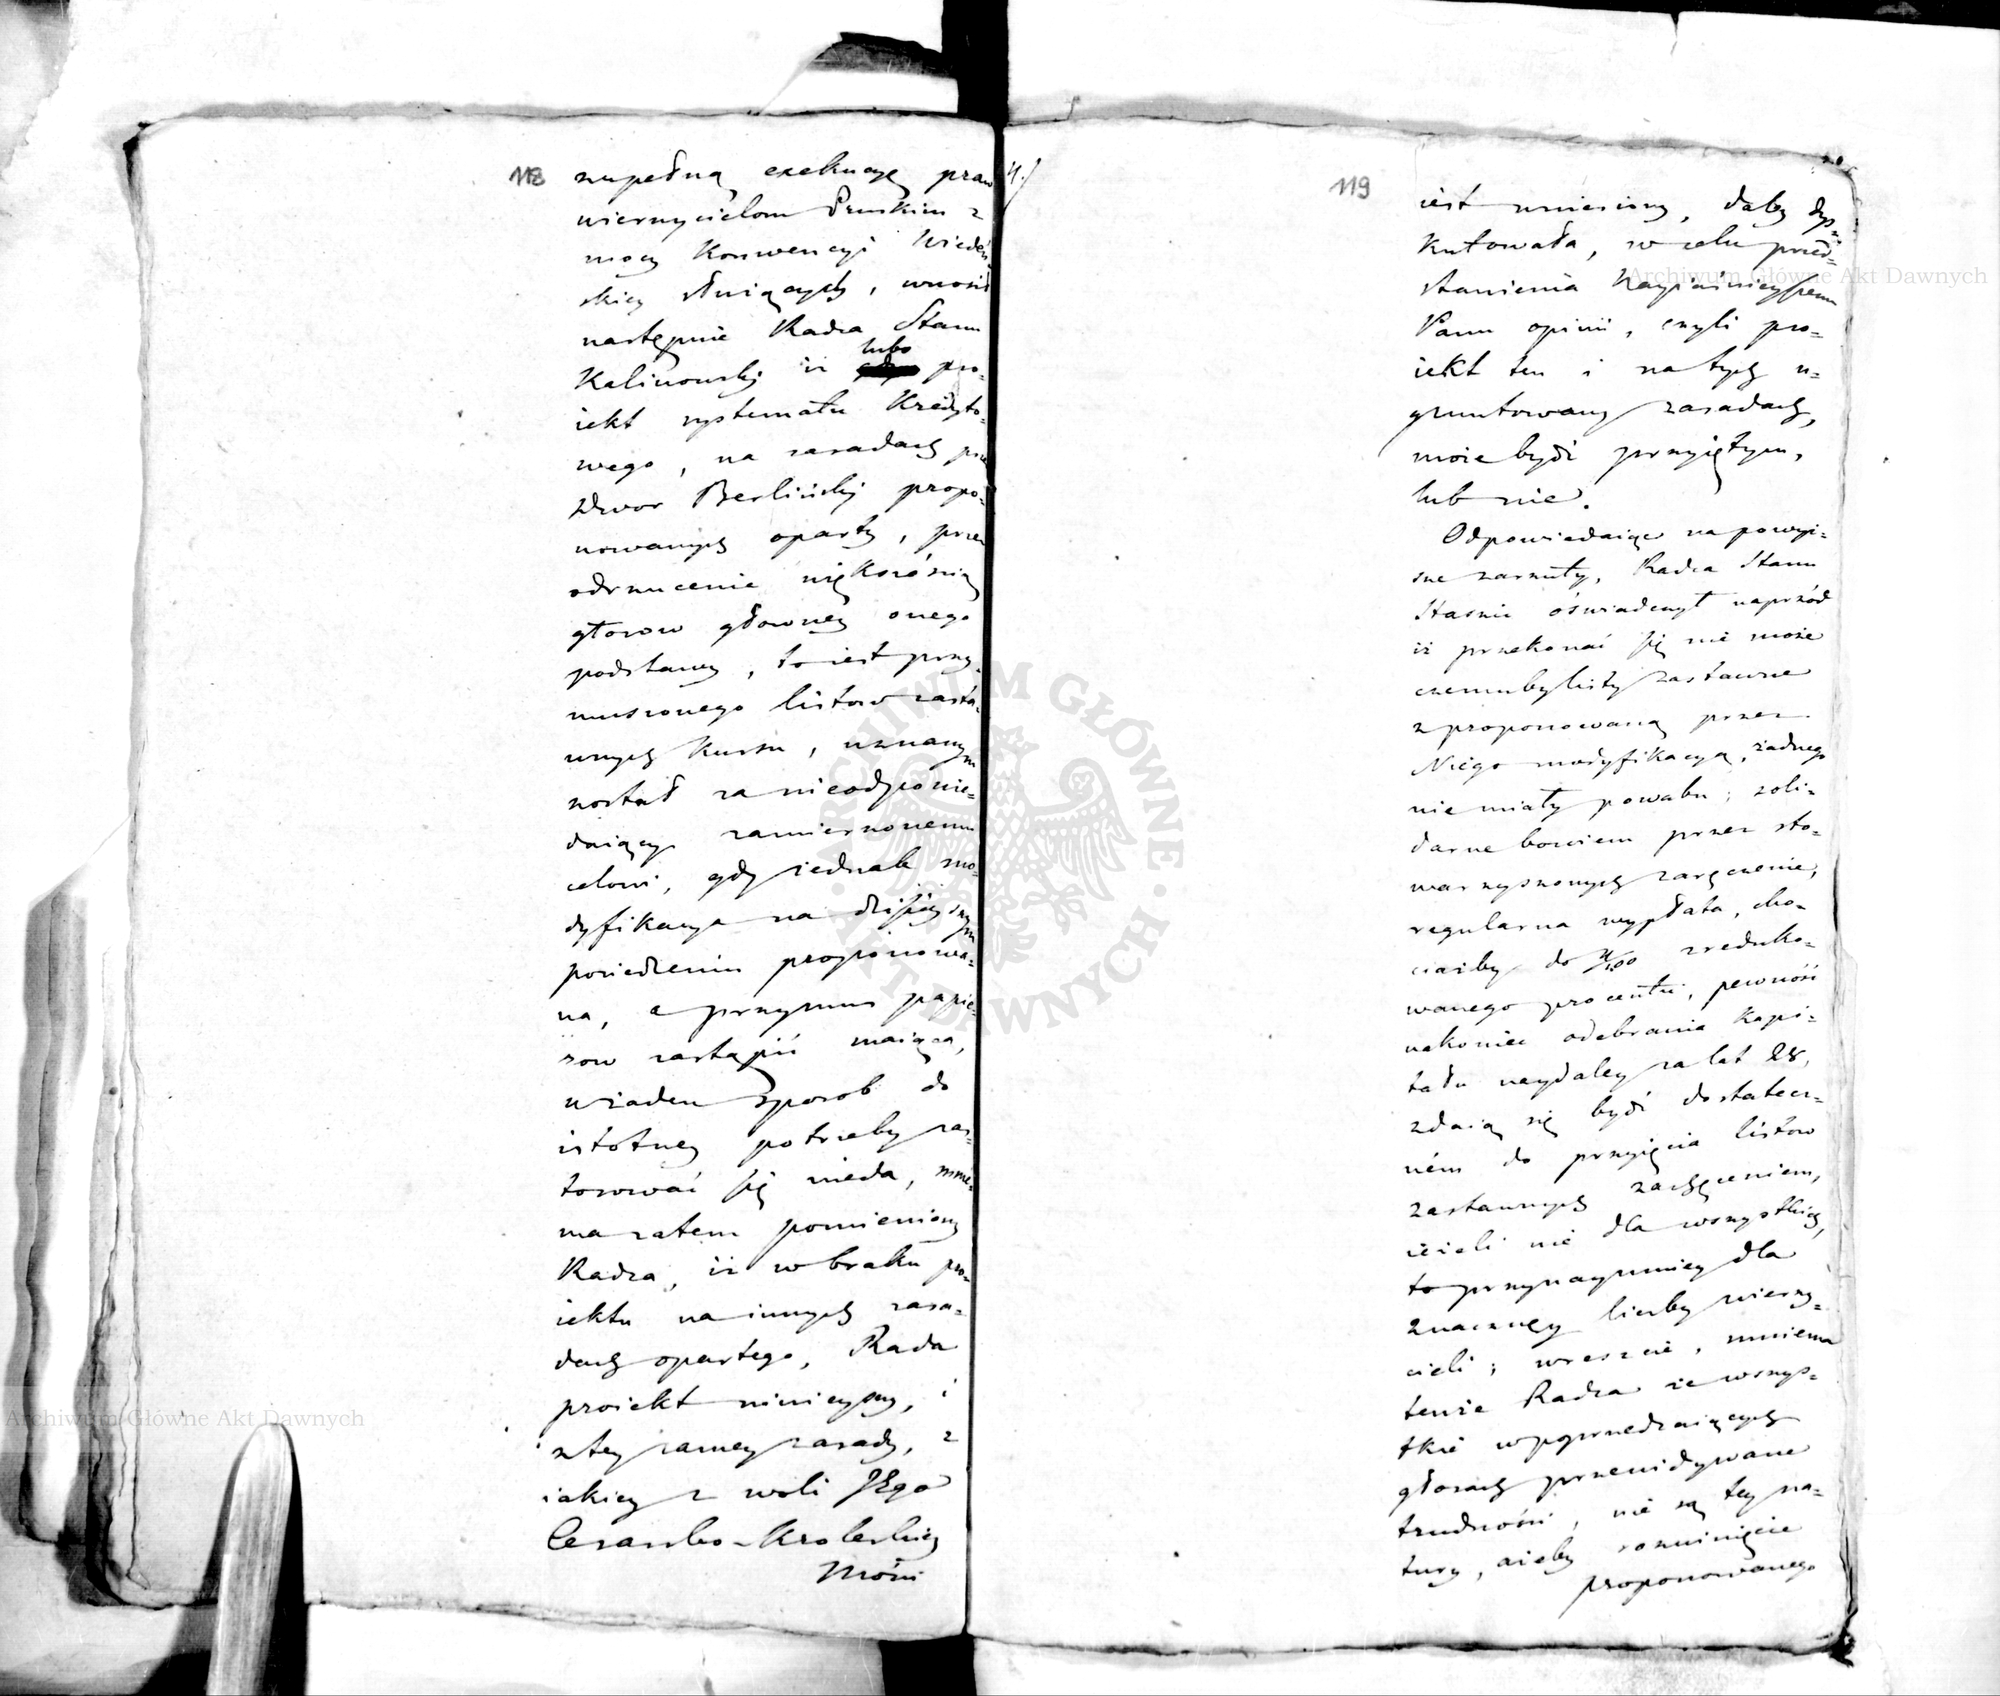 118
zupełną exekucyę praw
wierzycielom Pruskim z
mocy Konwencyi Wiedeń-
skiey służących, wnosił
następnie Radca Stanu
Kalinowski iż lubo pro-
iekt systematu Kredyto-
wego, na zasadach prze
Dwor Berliński propo-
nowanych oparty, przez
odrzucenie większością
głosow głowney onego
podstawy, to iest przy-
muszonego listow zasta-
wnych kursu, uznanym
został za nieodpowie-
daiący zamierzonemu
celowi, gdy iednak mo-
dyfikacya na dzisieyszym
posiedzeniu proponowa-
na, a przymus papie-
row zastąpić maiąca,
w żaden sposob do
istotney potrzeby zas-
tosować się nieda, mnie-
ma zatem pomieniony
Radca, iż w braku pro-
iektu na innych zasa-
dach opartego, Rada
proiekt ninieyszy, i
z tey samey zasady, z
iakiey z woli JEgo
Cesarsko-Krolewskiey
Mości
4./
119
iest wniesiony, daley dys-
kutowała, w celu przed-
stawienia Nayiaśnieyszemu
Panu opinii, czyli pro-
iekt ten i na tych u-
gruntowany zasadach,
może bydź przyiętym,
lub nie.
Odpowiedaiąc na powyż-
sze zarzuty, Radca Stanu
Staszic oświadczył naprzód
iż przekonać się nie może
czemuby listy zastawne
z proponowaną przez
Niego modyfikacyą, żadnego
nie miały powabu; soli-
darne bowiem przez sto-
warzyszonych zaręczenie,
regularna wypłata, cho-
ciażby do 4/100 zreduko-
wanego procentu, pewność
nakoniec odebrania Kapi-
tału naydaley za lat 28,
zdaią się bydź dostatecz-
ném do przyięcia listow
zastawnych zachęceniem,
ieżeli nie dla wszystkich,
to przynaymniey dla
znaczney liczby wierzy-
cieli; wreszcie, mniema
tenże Radca że wszys-
tkie w poprzedzaiących
głosach przewidywane
trudności, nie są tey na-
tury, ażeby rozwinięcie
proponowanego
Archiwum Główne Akt Dawnych
Archiwum Główne Akt Dawnych
ARCHIWUM GŁÓWNE · AKT DAWNYCH ·